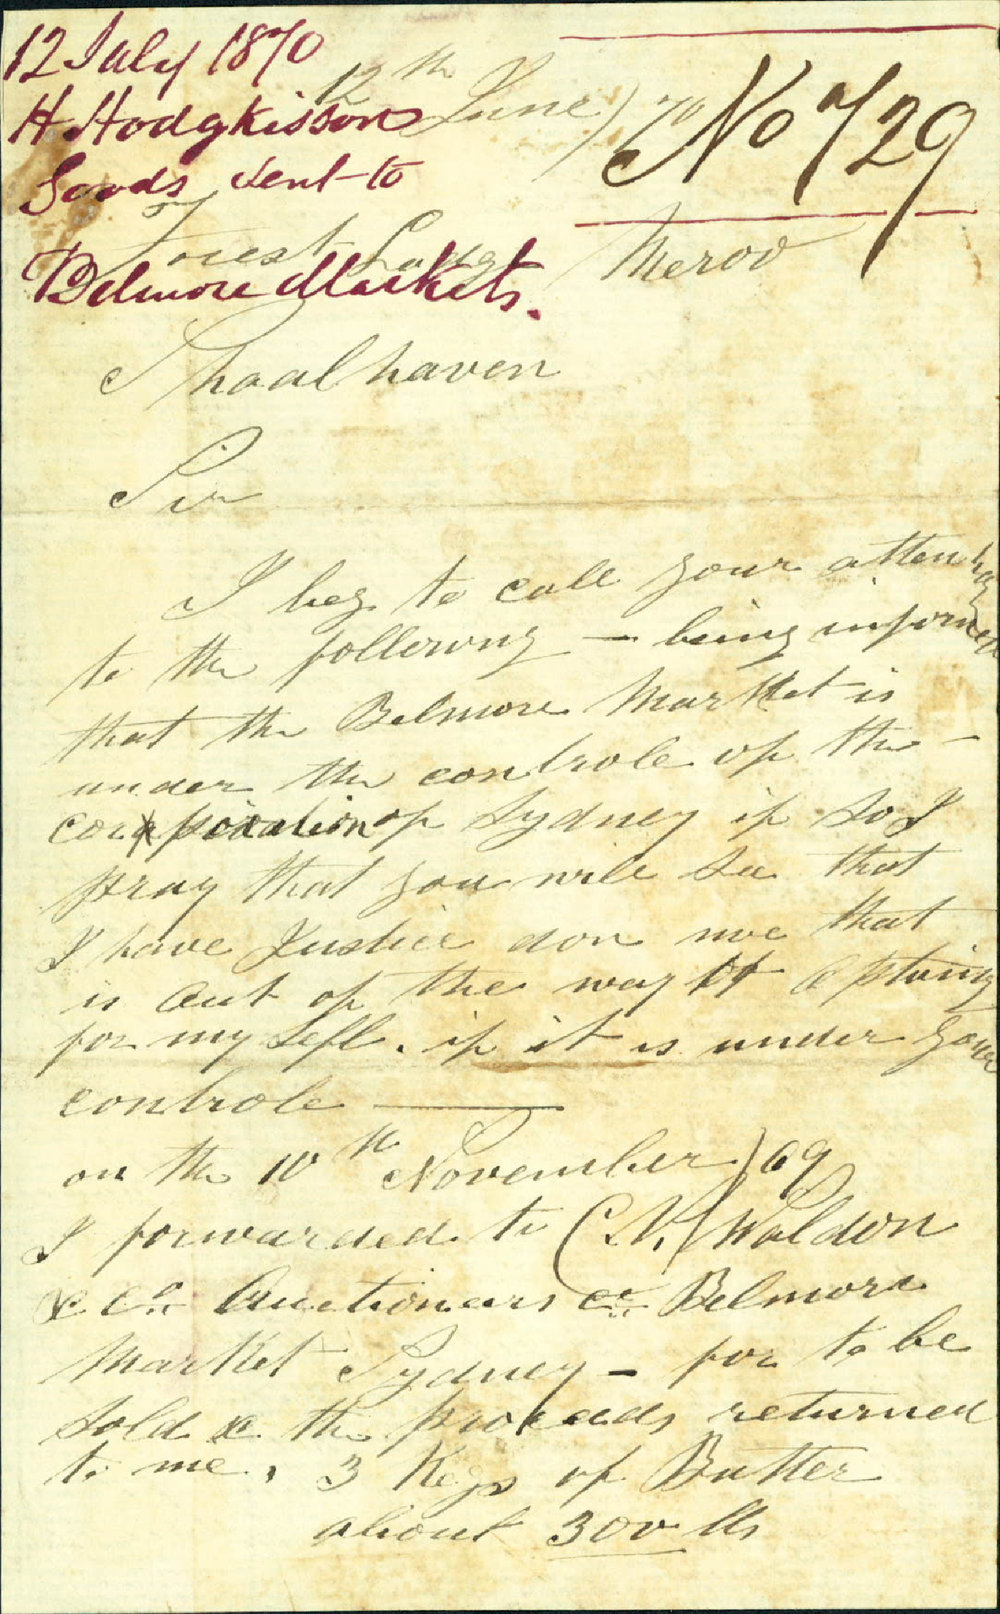 12 July 1870
H Hodgkisson
Goods sent to
Belmore Markets.
No 729
12th June / 70
Forest Lodge Meroo
Shoalhaven
Sir
I beg to call your attention
to the following — being informed
that the Belmore Market is
under the controle of the —
corporation of Sydney if so I
pray that you will see that
I have Justice don me that
is out of the way of acting
for my self. if it is under your
controle ———
on the 10th November / 69
I forwarded to C. V. Waldon
& Co. Auctionears &c Belmore
Market Sydney — for to be
sold & the proceeds returned
to me, 3 Kegs of Butter
about 300 lbs